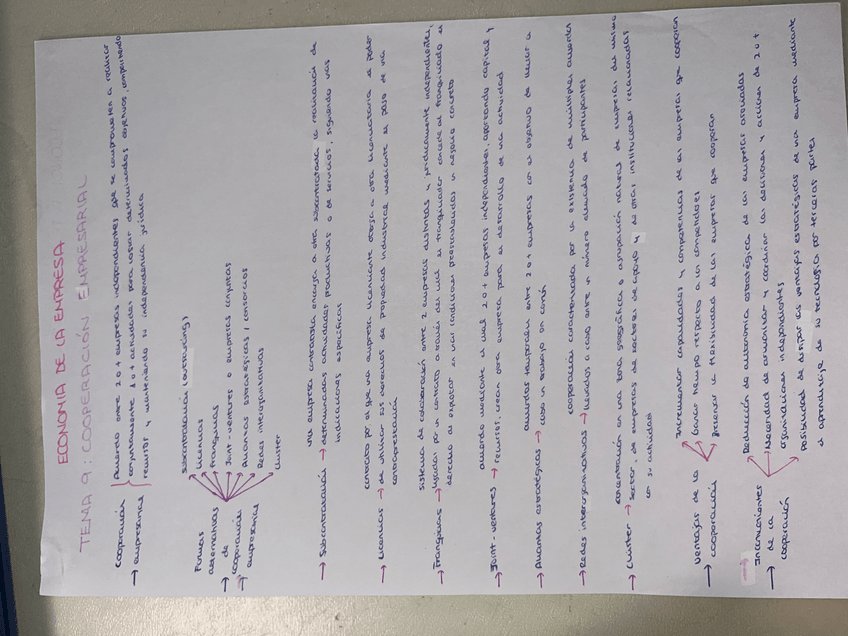 ECONOMIA DE LA EMPRESA
TEMA 9: COOPERACIÓN EMPRESARIAL
→ Cooperación empresarial { Acuerdo entre 2 o + empresas independientes que se comprometen a realizar
conjuntamente 1 o + actividades para lograr determinados objetivos, compartiendo
recursos y manteniendo su independencia jurídica
→ Formas alternativas de cooperación empresarial
Subcontratación (outsourcing)
Licencias
Franquicias
Joint-ventures o empresas conjuntas
Alianzas estratégicas / consorcios
Redes interorganizativas
Cluster
→ Subcontratación → una empresa contratista encarga a otra subcontratada la realización de
determinadas actividades productivas o de servicios, siguiendo unas
indicaciones específicas
→ Licencias → contrato por el que una empresa licenciante otorga a otra licenciataria el poder
de utilizar sus derechos de propiedad industrial mediante el pago de una
contraprestación
→ Franquicias → sistema de colaboración entre 2 empresas distintas y jurídicamente independientes,
ligadas por un contrato a través del cual el franquiciador concede al franquiciado el
derecho a explotar en unas condiciones preestablecidas un negocio concreto
→ Joint-ventures → acuerdo mediante el cual 2 o + empresas independientes, aportando capital y
recursos, crean otra empresa para el desarrollo de una actividad
→ Alianzas estratégicas → acuerdos temporales entre 2 o + empresas con el objetivo de llevar a
cabo un trabajo en común
→ Redes interorganizativas → cooperación caracterizada por la existencia de múltiples acuerdos
llevados a cabo entre un número elevado de participantes
→ Cluster → concentración en una zona geográfica o agrupación natural de empresas del mismo
sector, de empresas de sectores de apoyo y de otras instituciones relacionadas
con su actividad
→ Ventajas de la cooperación
Incrementar capacidades y competencias de las empresas que cooperan
Ganar tiempo respecto a los competidores
la flexibilidad de las empresas que cooperan
→ Inconvenientes de la cooperación
Reducción de autonomía estratégica de las empresas asociadas
Necesidad de armonizar y coordinar las decisiones y acciones de 2 o +
organizaciones independientes
Posibilidad de disipar las ventajas estratégicas de una empresa mediante
el aprendizaje de su tecnología por terceras partes